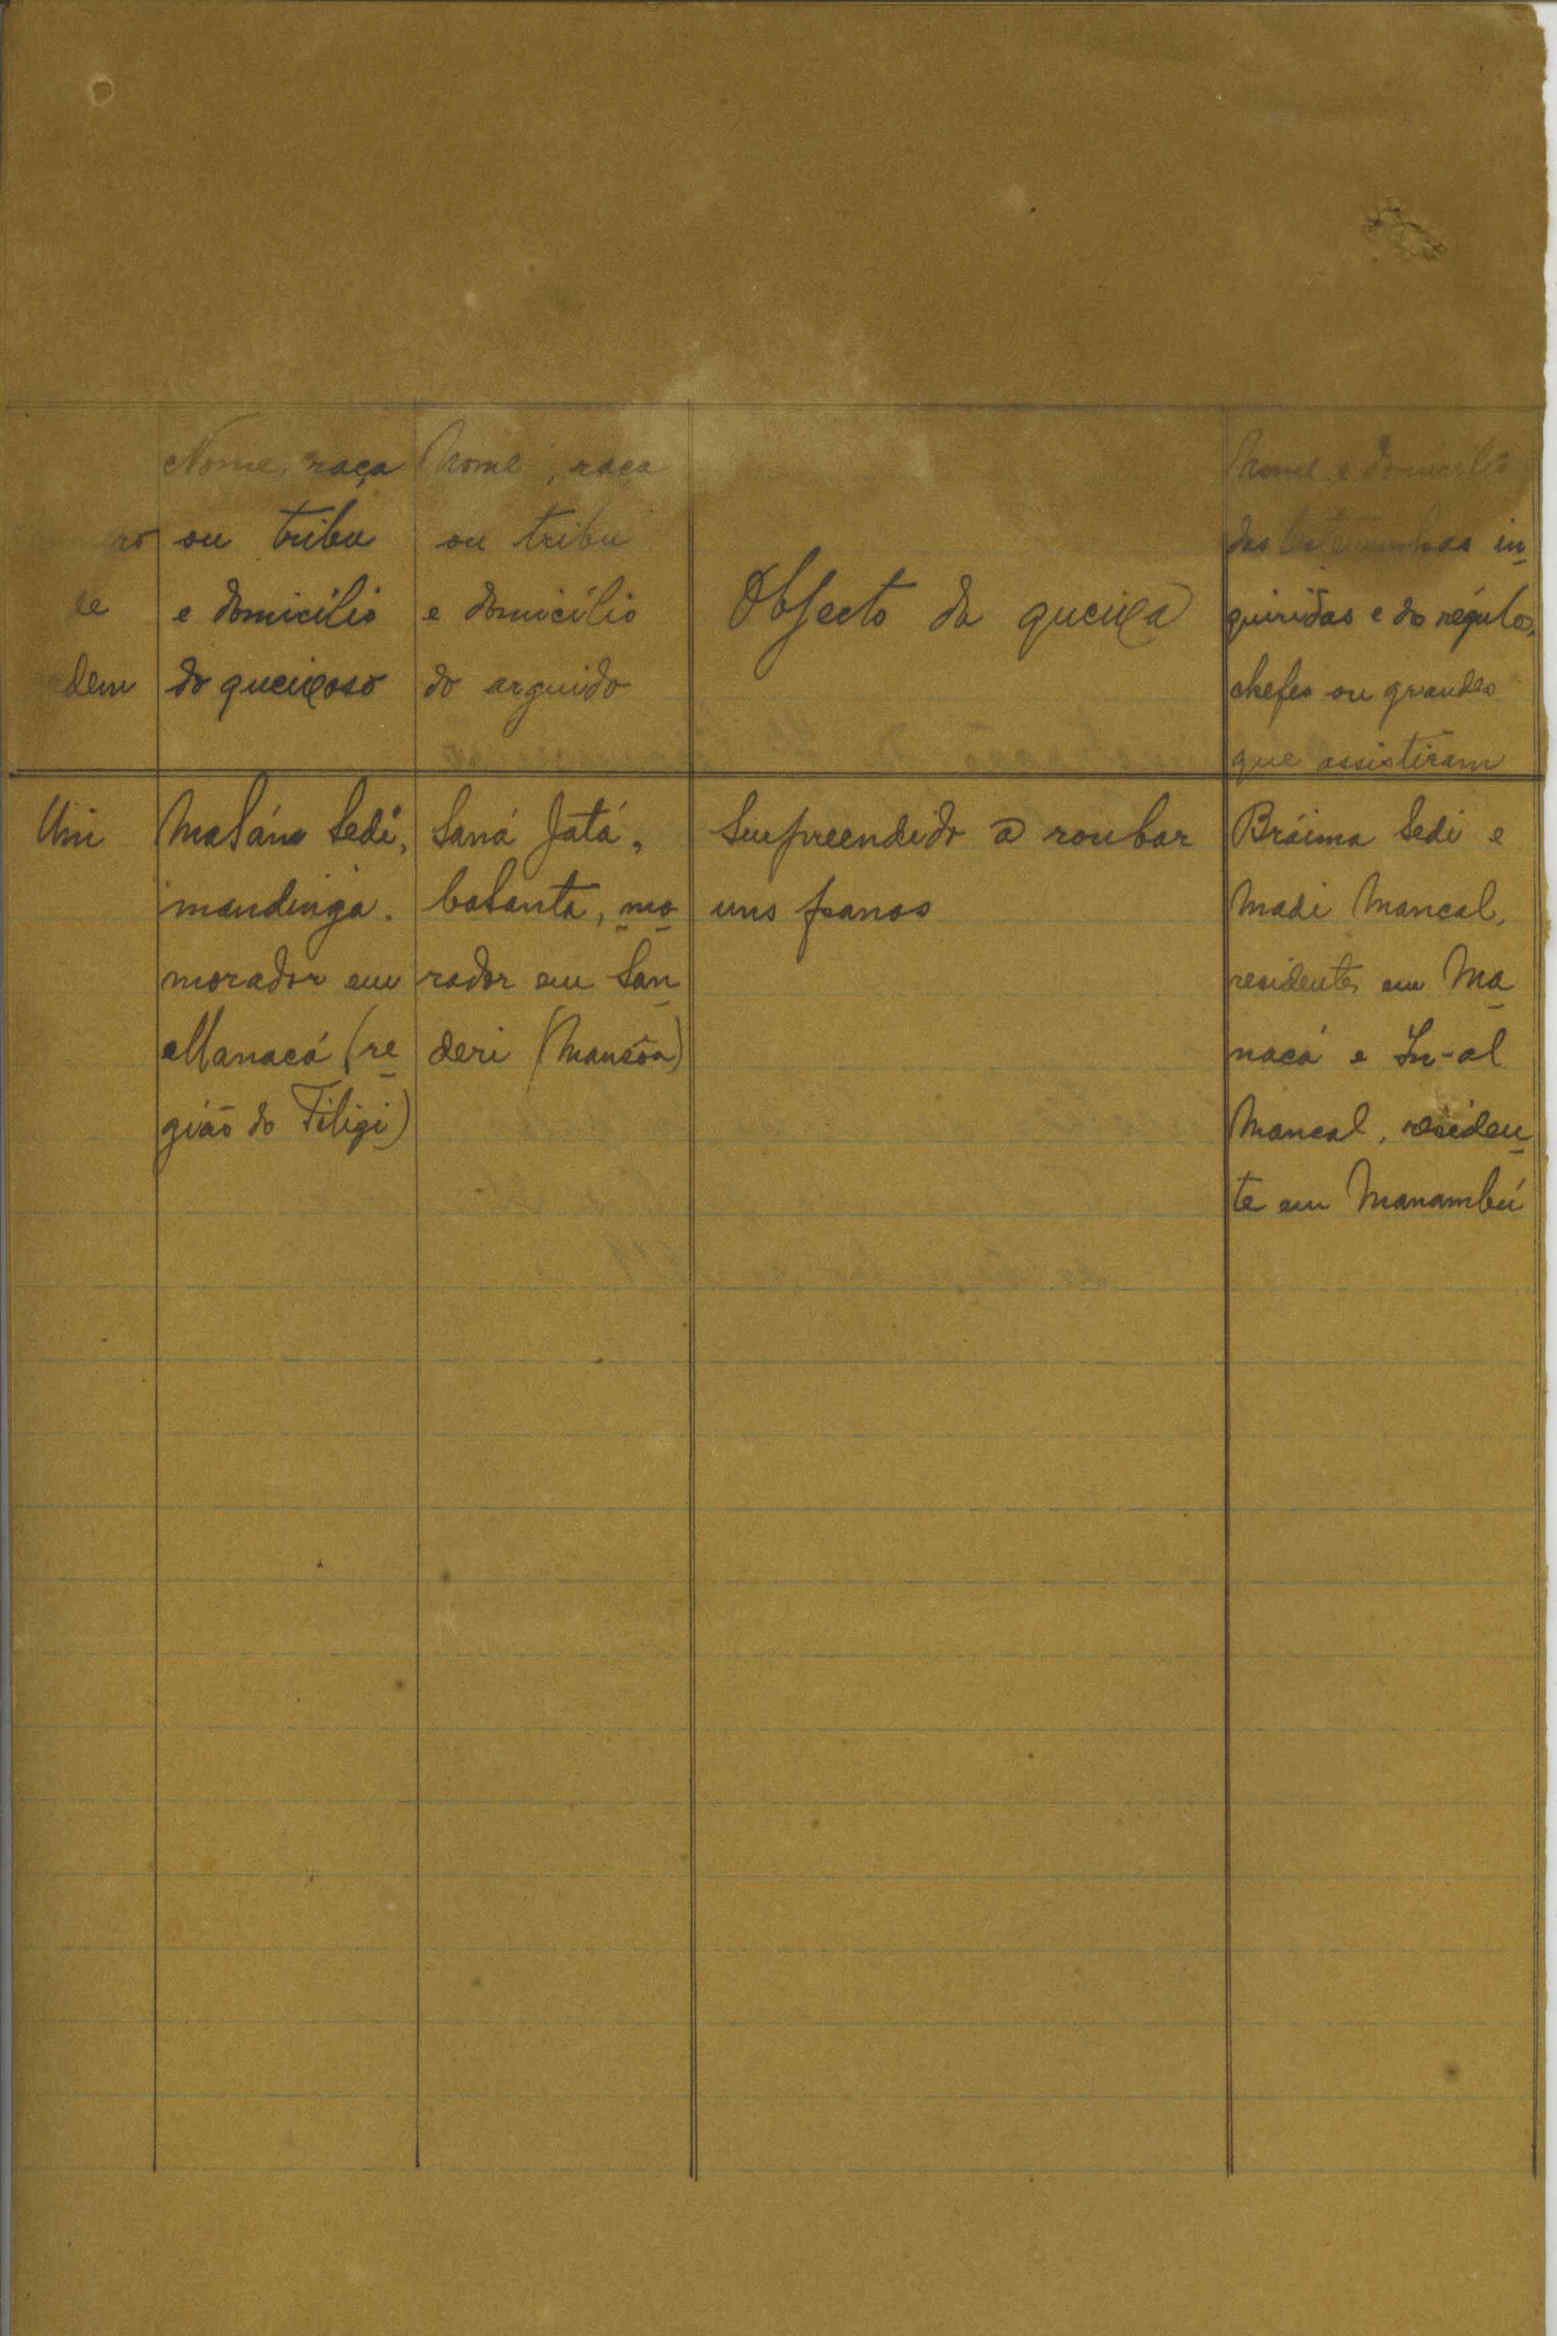 Nome, raça
ou tribu
e domicílio
do queixoso
Nome, raça
ou tribu
e domicílio
do arguido
Objecto da queixa
Nome e domicílio
das testemunhas in
quiridas e do régulo,
chefes ou grandes
que assistiram
ro
de
dem
Um
Malán Sedi,
mandinga.
morador em
Manacá (re
gião do Tiligi)
Saná Jatá,
balanta, mo
rador em San
deri (Mansôa)
Surpreendido a roubar
uns panos
Bráima Sedi e
Madi Mancal,
residentes em Ma
nacá e In-al
Mancal, residen
te em Manambú